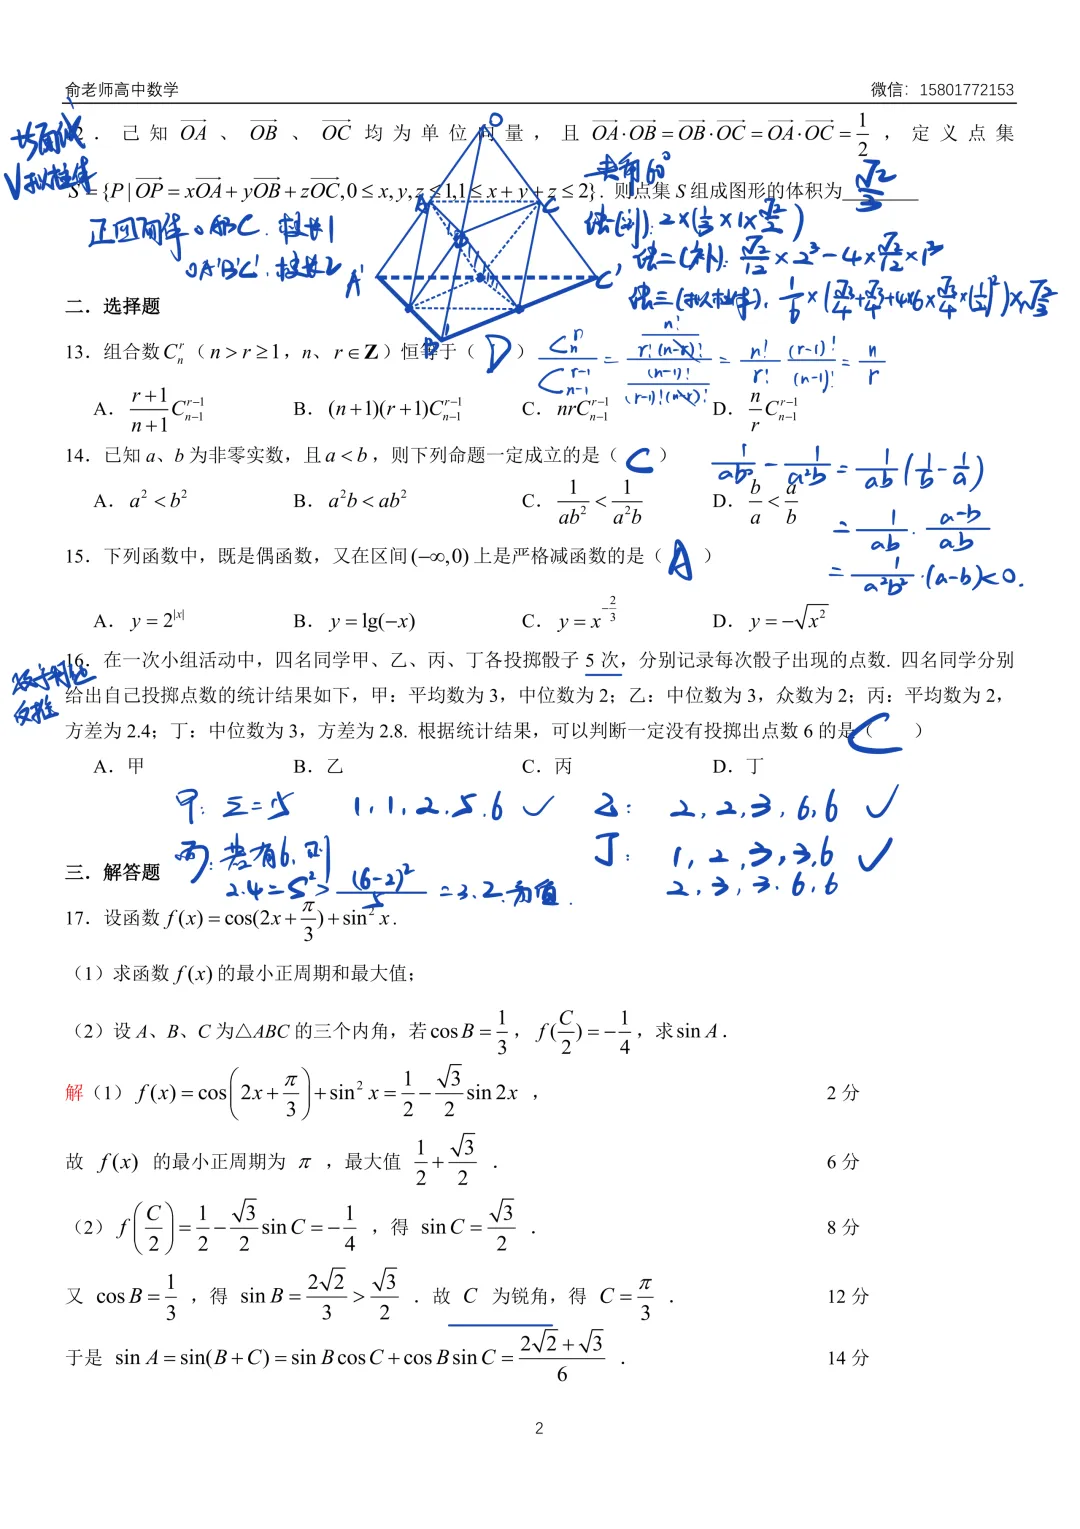 俞老师高中数学 微信：15801772153
共面线
V拟柱体
2．已知 OA→、OB→、OC→ 均为单位向量，且 OA→·OB→=OB→·OC→=OA→·OC→=1/2，定义点集
S={P|OP→=xOA→+yOB→+zOC→,0≤x,y,z≤1,1≤x+y+z≤2}．则点集 S 组成图形的体积为 √2/3
夹角60°
正四面体O-ABC．棱长1
O-A'B'C'．棱长2
O
A
B
C
A'
B'
C'
法一(割)：2×(1/3×1×√2/2)
法二(补)：√2/12×2³-4×√2/12×1³
法三(拟柱体)．1/6×(√3/4+√3/4+4×6×√3/4×(1/2)²)×√2/3
二．选择题
13．组合数 C_n^r（n>r≥1，n、r∈Z）恒等于（ D ）
C_n^r/C_{n-1}^{r-1} = (n!/(r!(n-r)!))/((n-1)!/((r-1)!(n-r)!)) = n!/r! (r-1)!/(n-1)! = n/r
A．(r+1)/(n+1) C_{n-1}^{r-1} B．(n+1)(r+1)C_{n-1}^{r-1} C．nrC_{n-1}^{r-1} D．n/r C_{n-1}^{r-1}
14．已知 a、b 为非零实数，且 a<b，则下列命题一定成立的是（ C ）
A．a²<b² B．a²b<ab² C．1/(ab²)<1/(a²b) D．b/a<a/b
1/(ab²)-1/(a²b)=1/(ab)(1/b-1/a)
=1/(ab)·(a-b)/(ab)
=1/(a²b²)·(a-b)<0.
15．下列函数中，既是偶函数，又在区间(-∞,0)上是严格减函数的是（ A ）
A．y=2^{|x|} B．y=lg(-x) C．y=x^{-2/3} D．y=-√x²
16．在一次小组活动中，四名同学甲、乙、丙、丁各投掷骰子 5 次，分别记录每次骰子出现的点数. 四名同学分别
给出自己投掷点数的统计结果如下，甲：平均数为 3，中位数为 2；乙：中位数为 3，众数为 2；丙：平均数为 2，
方差为 2.4；丁：中位数为 3，方差为 2.8. 根据统计结果，可以判断一定没有投掷出点数 6 的是（ C ）
反推
A．甲 B．乙 C．丙 D．丁
甲：Σ=15 1,1,2,5,6 ✓ 乙： 2,2,3,6,6 ✓
丙：若有6，则 2.4=S²>(6-2)²/5=3.2．矛盾．
丁： 1,2,3,3,6 ✓
2,3,3,6,6
三．解答题
17．设函数 f(x)=cos(2x+π/3)+sin²x .
（1）求函数 f(x) 的最小正周期和最大值；
（2）设 A、B、C 为△ABC 的三个内角，若 cos B=1/3，f(C/2)=-1/4，求 sin A．
解（1）f(x)=cos(2x+π/3)+sin²x=1/2-√3/2 sin 2x ， 2 分
故 f(x) 的最小正周期为 π ，最大值 1/2+√3/2 ． 6 分
（2）f(C/2)=1/2-√3/2 sin C=-1/4 ，得 sin C=√3/2 ． 8 分
又 cos B=1/3 ，得 sin B=2√2/3>√3/2 ．故 C 为锐角，得 C=π/3 ． 12 分
于是 sin A=sin(B+C)=sin B cos C+cos B sin C=(2√2+√3)/6 ． 14 分
2